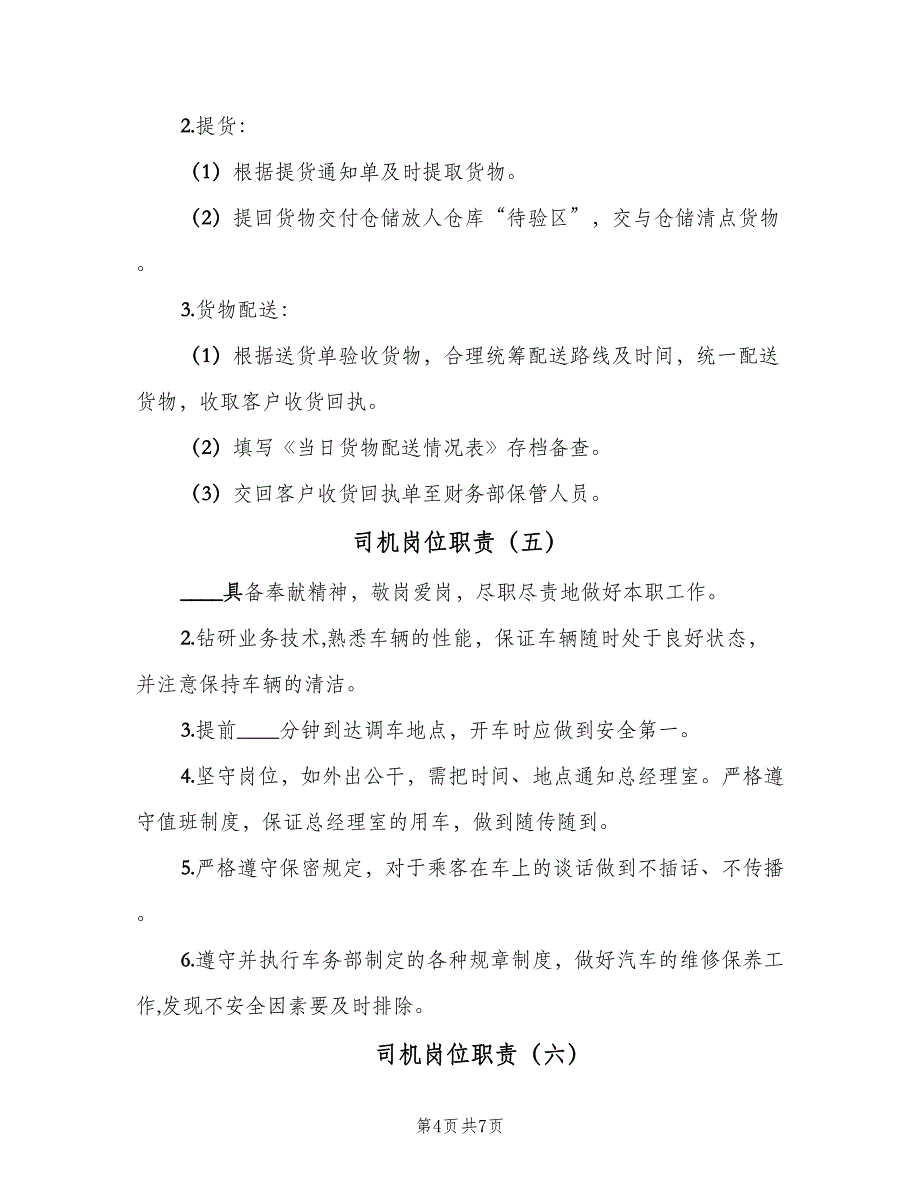 2.提货：
（1）根据提货通知单及时提取货物。
（2）提回货物交付仓储放人仓库“待验区”，交与仓储清点货物
。
3.货物配送：
（1）根据送货单验收货物，合理统筹配送路线及时间，统一配送
货物，收取客户收货回执。
（2）填写《当日货物配送情况表》存档备查。
（3）交回客户收货回执单至财务部保管人员。
司机岗位职责（五）
____具备奉献精神，敬岗爱岗，尽职尽责地做好本职工作。
2.钻研业务技术,熟悉车辆的性能，保证车辆随时处于良好状态，
并注意保持车辆的清洁。
3.提前____分钟到达调车地点，开车时应做到安全第一。
4.坚守岗位，如外出公干，需把时间、地点通知总经理室。严格遵
守值班制度，保证总经理室的用车，做到随传随到。
5.严格遵守保密规定，对于乘客在车上的谈话做到不插话、不传播
。
6.遵守并执行车务部制定的各种规章制度，做好汽车的维修保养工
作,发现不安全因素要及时排除。
司机岗位职责（六）
第4页共7页